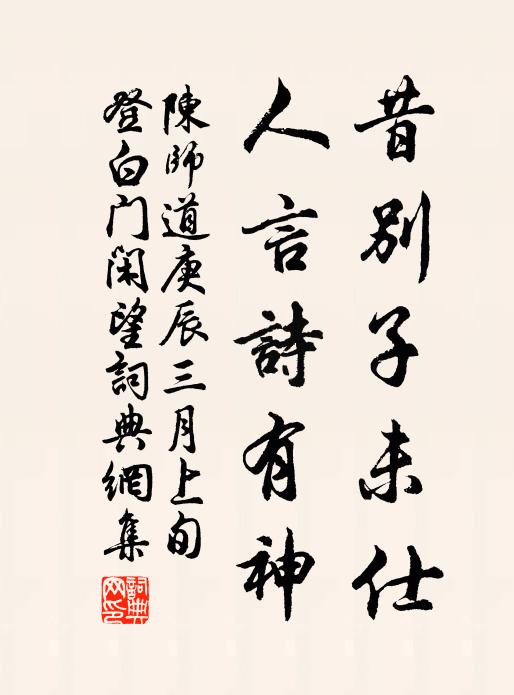 昔别子未仕
人言詩有神
陳師道庚辰三月上旬
登白门闲望詞典網集
詞典
网印